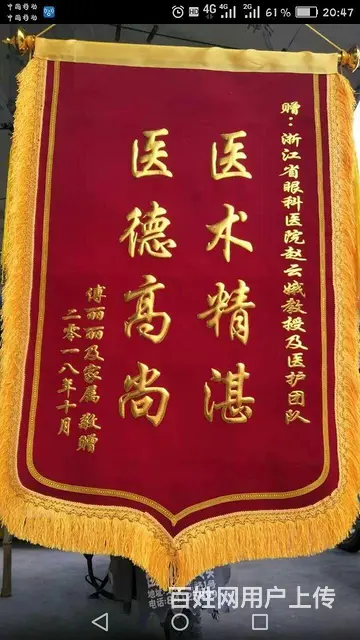 中国移动
中国移动
4G
4G
2G
61%
20:47
赠：浙江省眼科医院赵云娥教授及医护团队
医术精湛
医德高尚
傅丽丽及家属 敬赠
二零一八年十月
百姓网用户上传